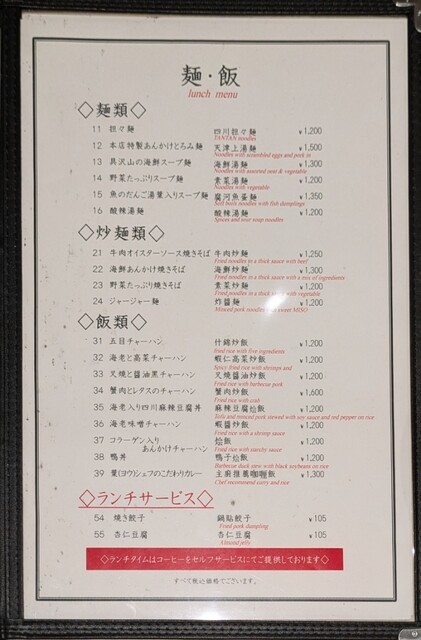 麺・飯
lunch menu
◇麺類◇
11 担々麺 四川担々麺 ¥1,200
TANTAN noodles
12 本店特製あんかけとろみ麺 天津上湯麺 ¥1,500
Noodles with scrambled eggs and pork in
13 具沢山の海鮮スープ麺 海鮮湯麺 ¥1,300
Noodles with assorted meat & vegetable
14 野菜たっぷりスープ麺 素菜湯麺 ¥1,200
Noodles with vegetable
15 魚のだんご湯葉入りスープ麺 腐河魚蛋麺 ¥1,350
Soft been noodles with fish dumplings
16 酸辣湯麺 酸辣湯麺 ¥1,200
Spices and sour soup noodles
◇炒麺類◇
21 牛肉オイスターソース焼きそば 牛肉炒麺 ¥1,250
Fried noodles in a thick sauce with beef
22 海鮮あんかけ焼きそば 海鮮炒麺 ¥1,300
Fried noodles in a thick sauce with a mix of ingredients
23 野菜たっぷり焼きそば 素菜炒麺 ¥1,200
Fried noodles in a thick sauce with vegetable
24 ジャージャー麺 炸醤麺 ¥1,200
Minced pork noodles with sweet MISO
◇飯類◇
31 五目チャーハン 什錦炒飯 ¥1,200
fried rice with five ingredients
32 海老と高菜チャーハン 蝦仁高菜炒飯 ¥1,200
Spicy fried rice with shrimps and
33 叉焼と醤油黒チャーハン 叉焼醤油炒飯 ¥1,200
Fried rice with barbecue pork
34 蟹肉とレタスのチャーハン 蟹肉炒飯 ¥1,600
Fried rice with crab
35 海老入り四川麻辣豆腐丼 麻辣豆腐烩飯 ¥1,200
Tofu and minced pork stewed with soy sauce and red pepper on rice
36 海老味噌チャーハン 蝦醤炒飯 ¥1,200
Fried rice with a shrimp sauce
37 コラーゲン入り
あんかけチャーハン 烩飯 ¥1,200
Fried rice with starchy sauce
38 鴨丼 鴨子烩飯 ¥1,200
Barbecue duck stew with black soybeans on rice
39 葉(ヨウ)シェフのこだわりカレー 主廚推薦咖喱飯 ¥1,300
Chef recommend curry and rice
◇ランチサービス◇
54 焼き餃子 鍋貼餃子 ¥105
Fried pork dumpling
55 杏仁豆腐 杏仁豆腐 ¥105
Almond jelly
◇ランチタイムはコーヒーをセルフサービスにてご提供しております◇
すべて税込価格でございます。